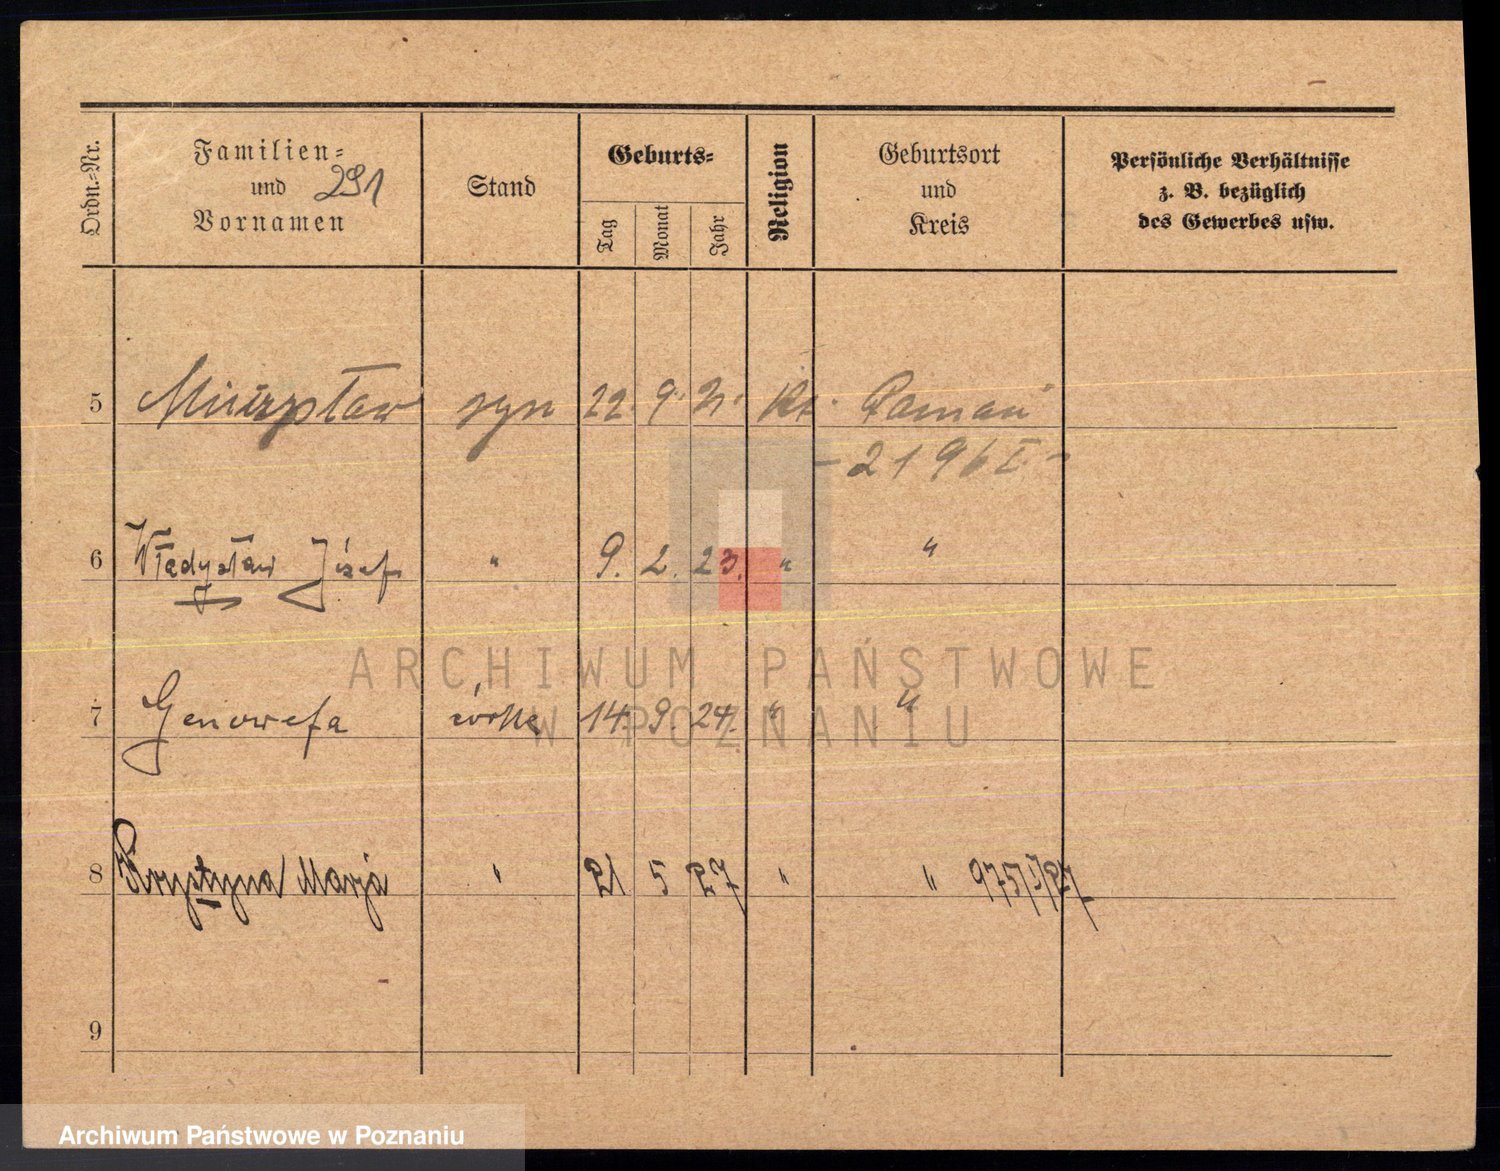 Ordn.=Nr.
Familien=
und 291
Vornamen
Stand
Geburts=
Tag Monat Jahr
Religion
Geburtsort
und
Kreis
Persönliche Verhältnisse
z. B. bezüglich
des Gewerbes usw.
5 syn 22. 9. 21. Kt.
- 2196 I. -
6 Władysław Józef " 9. 2. 23. " "
7 Genowefa córka 14. 9. 24. " "
8 Krystyna Marja " 21 5 27 " "
9
ARCHIWUM PAŃSTWOWE
W POZNANIU
Archiwum Państwowe w Poznaniu